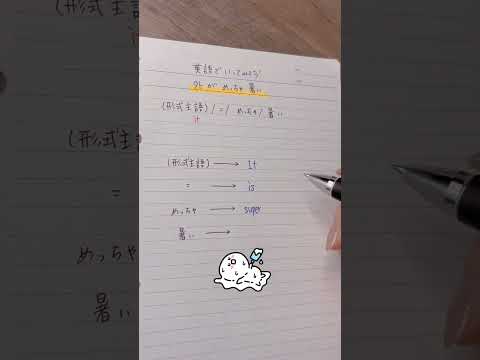 英語でいってみよう
外が めっちゃ 暑い
(形式主語) / = / めっちゃ / 暑い
it
(形式主語) → It
= → is
めっちゃ → super
暑い →